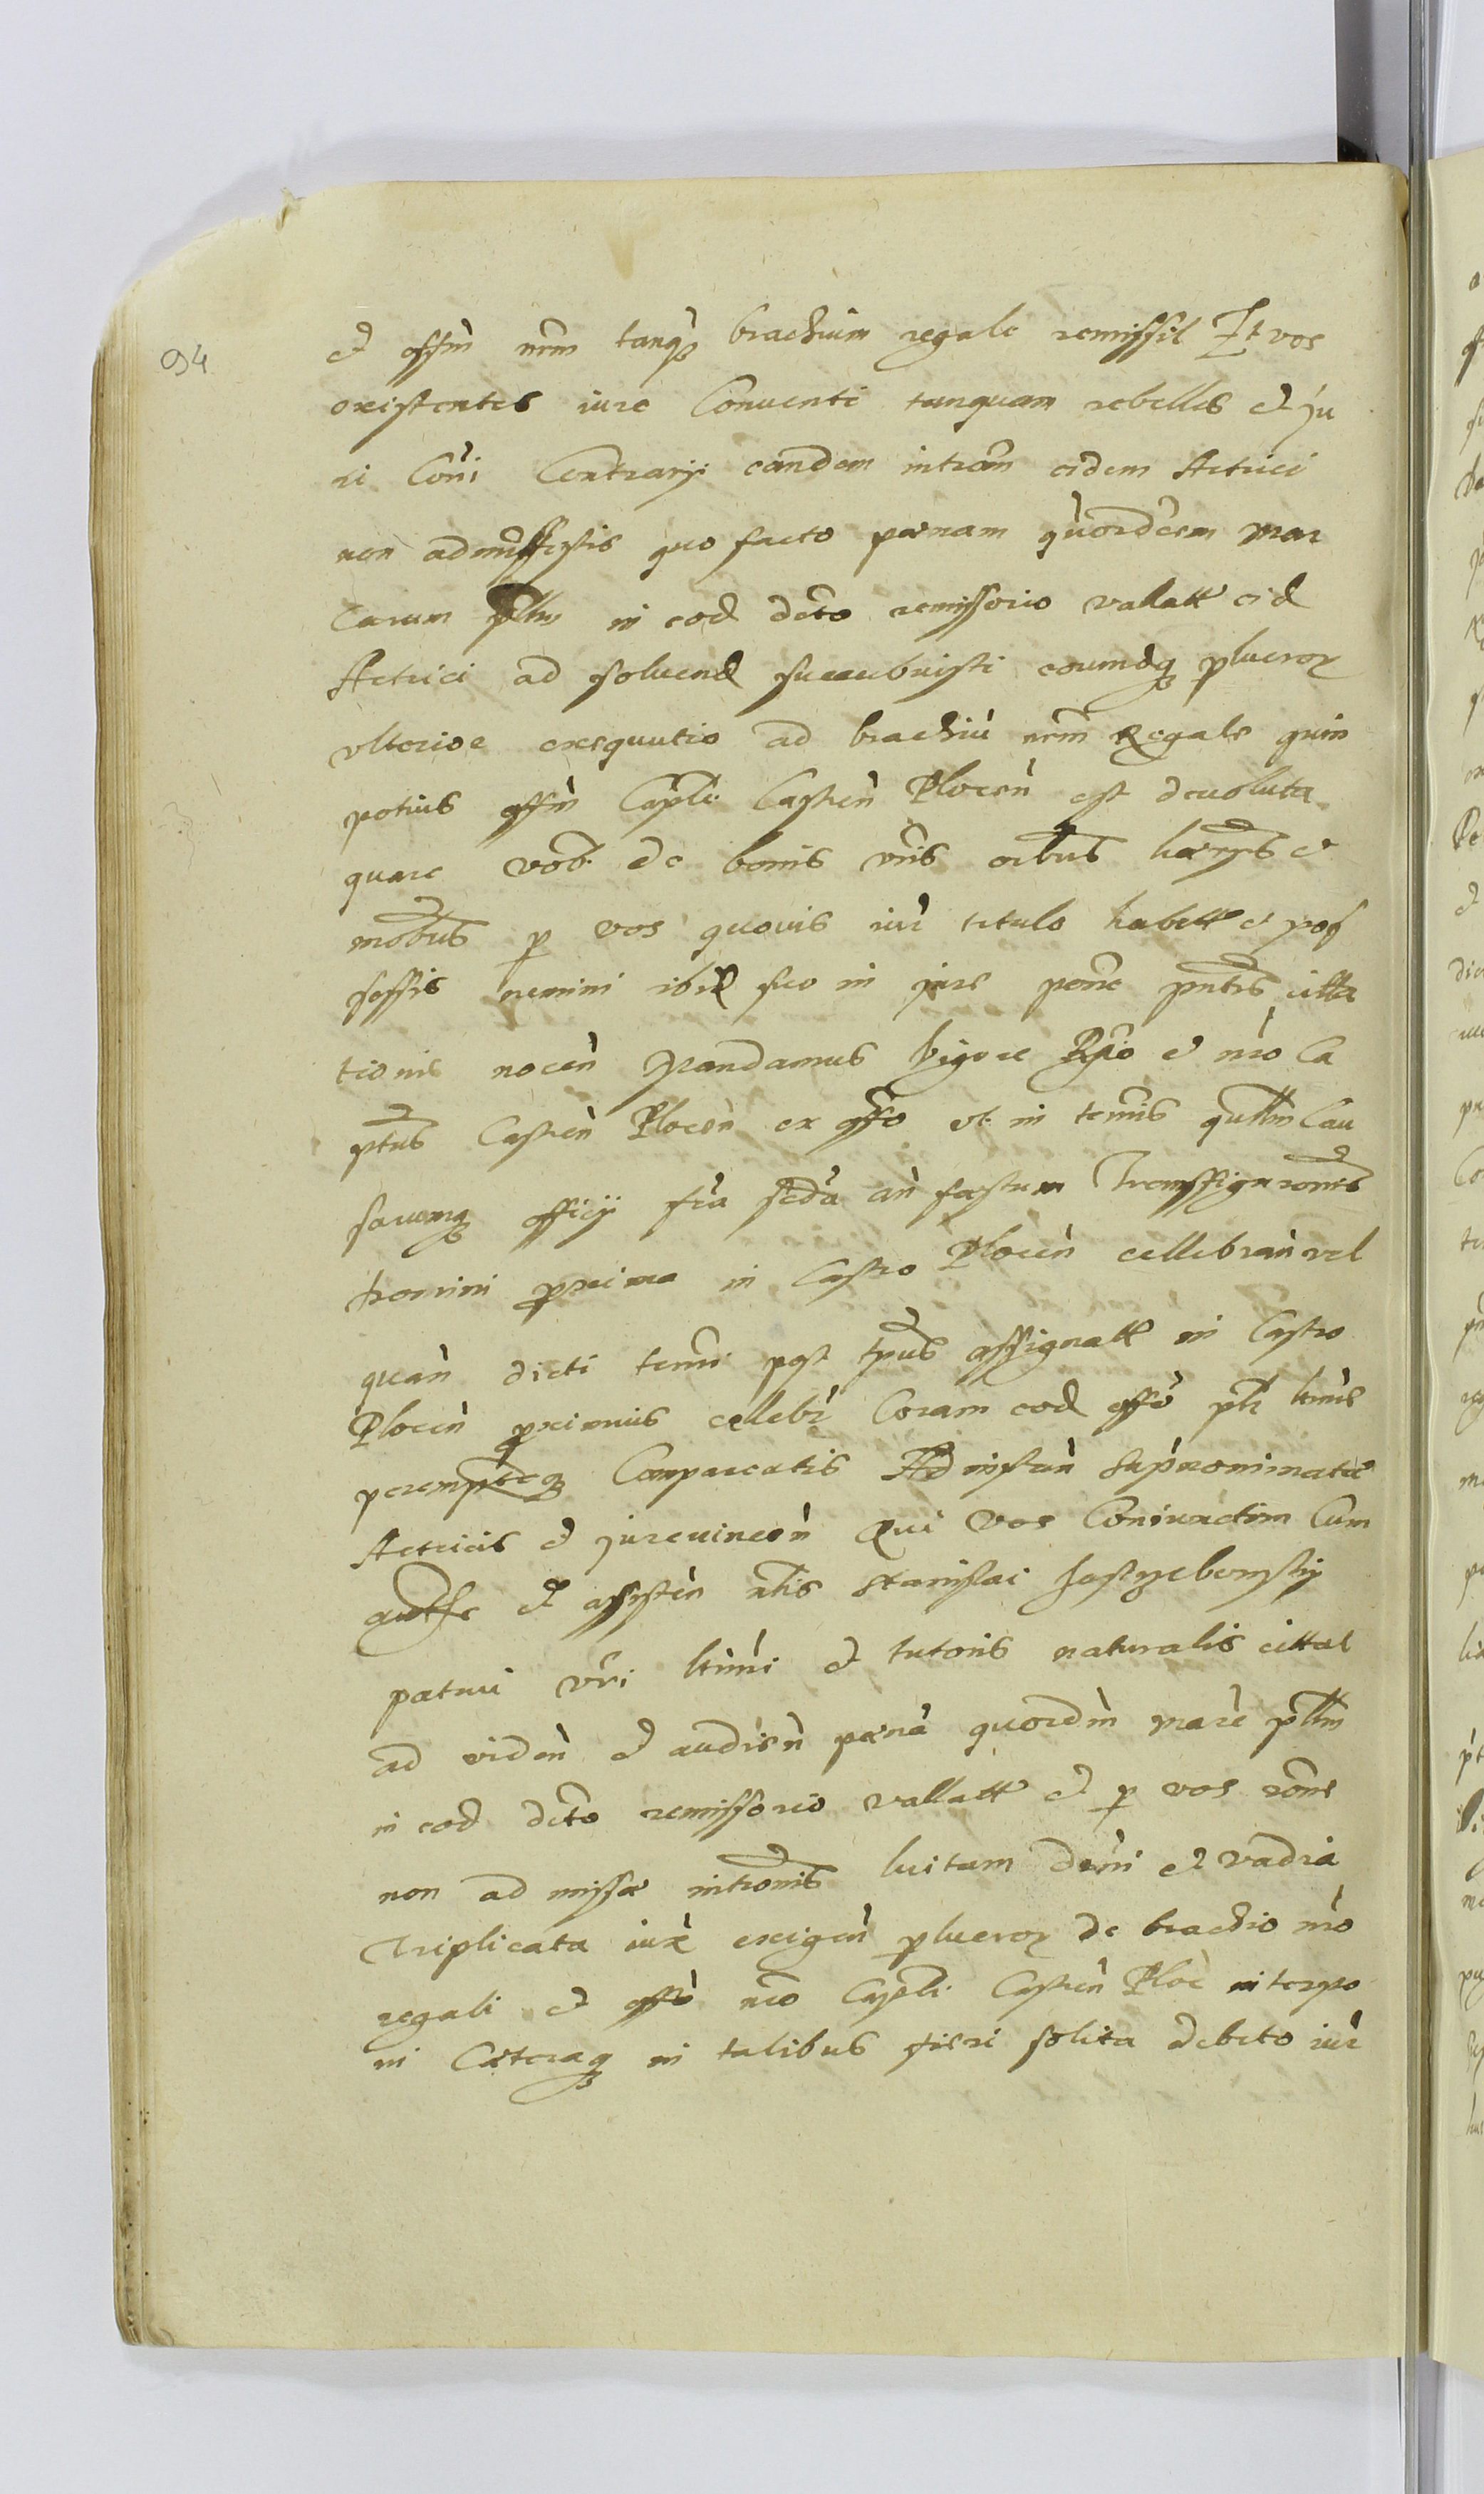 94
et offm nrm tanqꝫ brachium regale remissit Et vos
existentes iure Conuenti tanquam rebelles et ju
ri Coi Contrarij eandem introm eidem Actrici
non admissistis quo facto pœnam quordecem mar
carum in eod dcto remissorio vallatt eid
Actrici ad soluend succubuisti eoumdqꝫ plucror
vlterior exequutio ad brachiu nrm Regale quin
potius offm Caplē Castren Plocen est deuoluta
quare vob de bonis vris oibus hærrys et
mobus p vos quouis iur titulo habitt et pos
sessis nemini ibid seo in jure pone pntis citta
tionis nocen Mandamus vigore Rgio et nro Ca
ptus Castren Plocen ex offo vt in termis qullm Cau
sarumqꝫ officij fria scda an festum Transfigraonis
Domini proxima in Castro Plocen cellebran vel
quan dicti termi post tpus assignatt in Castro
Plocen proximius celebr Coram eod offo plr ltime
peremptieqꝫ Compareatis Ad instan suprónominatæ
Actricis et jureuincen Qui vos Coniunctim Cum
authe et assisten nlis Stanislai Jastrzebowsky
patrui vri ltimi et tutoris naturalis cittat
ad viden et audien pœna quordm marc pllm
in eod dcto remissorio vallatt et p vos rone
non ad missæ intromis luitam demi et vadia
triplicata iure exigen plucror de brachio nro
regali et offo nro Capli Castren Ploc interpo
ni Cæteraqꝫ in talibus fieri solita debito iur